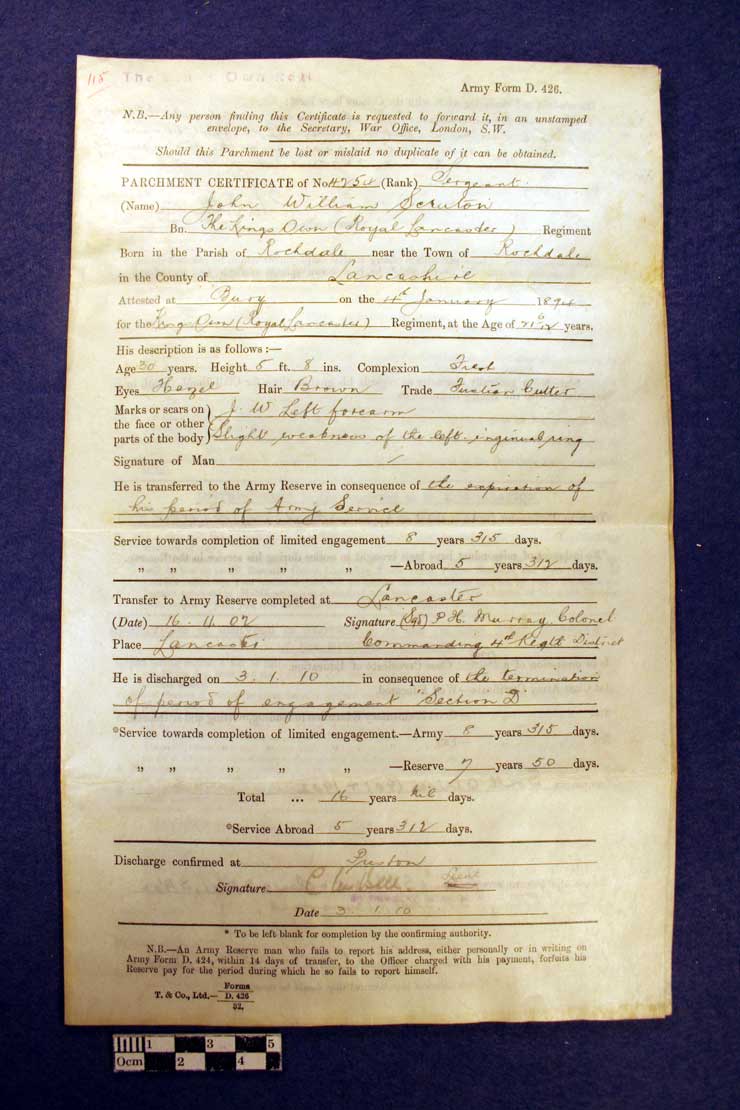 115 The King's Own Regt
Army Form D. 426.
N.B.—Any person finding this Certificate is requested to forward it, in an unstamped
envelope, to the Secretary, War Office, London, S.W.
Should this Parchment be lost or mislaid no duplicate of it can be obtained.
PARCHMENT CERTIFICATE of No 4254 (Rank) Sergeant.
(Name) John William Scruton
Bn. The Kings Own (Royal Lancaster) Regiment
Born in the Parish of Rochdale near the Town of Rochdale
in the County of Lancashire
Attested at Bury on the 4th January 1894
for the King Own (Royal Lancaster) Regiment, at the Age of 21 6/12 years.
His description is as follows :—
Age 30 years. Height 5 ft. 8 ins. Complexion Fresh
Eyes Hazel Hair Brown Trade Fustian Cutter
Marks or scars on J. W Left forearm
the face or other
parts of the body Slight weakness of the left inguinal ring
Signature of Man
He is transferred to the Army Reserve in consequence of the expiration of
his period of Army Service
Service towards completion of limited engagement 8 years 315 days.
„ „ „ „ „ —Abroad 5 years 312 days.
Transfer to Army Reserve completed at Lancaster
(Date) 16.11.02 Signature (Sgd) P H. Murray, Colonel
Place Lancaster Commanding 4th Regtl District
He is discharged on 3.1.10 in consequence of the termination
of period of engagement "Section D"
*Service towards completion of limited engagement.—Army 8 years 315 days.
„ „ „ „ „ —Reserve 7 years 50 days.
Total ... 16 years Nil days.
*Service Abroad 5 years 312 days.
Discharge confirmed at Preston
Signature Bell
Date 3.1.10
* To be left blank for completion by the confirming authority.
N.B.—An Army Reserve man who fails to report his address, either personally or in writing on
Army Form D. 424, within 14 days of transfer, to the Officer charged with his payment, forfeits his
Reserve pay for the period during which he so fails to report himself.
T. & Co., Ltd.— Forms
D. 426
32.
1 3 5
0cm 2 4